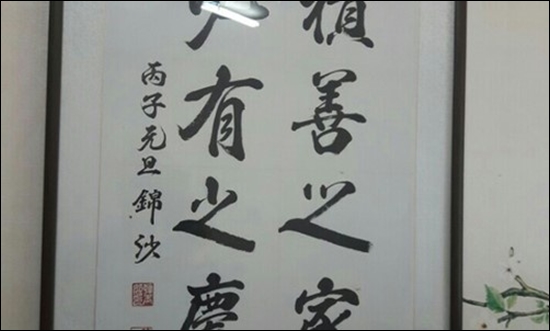 積善之家
必有之慶
丙子元旦 錦沙